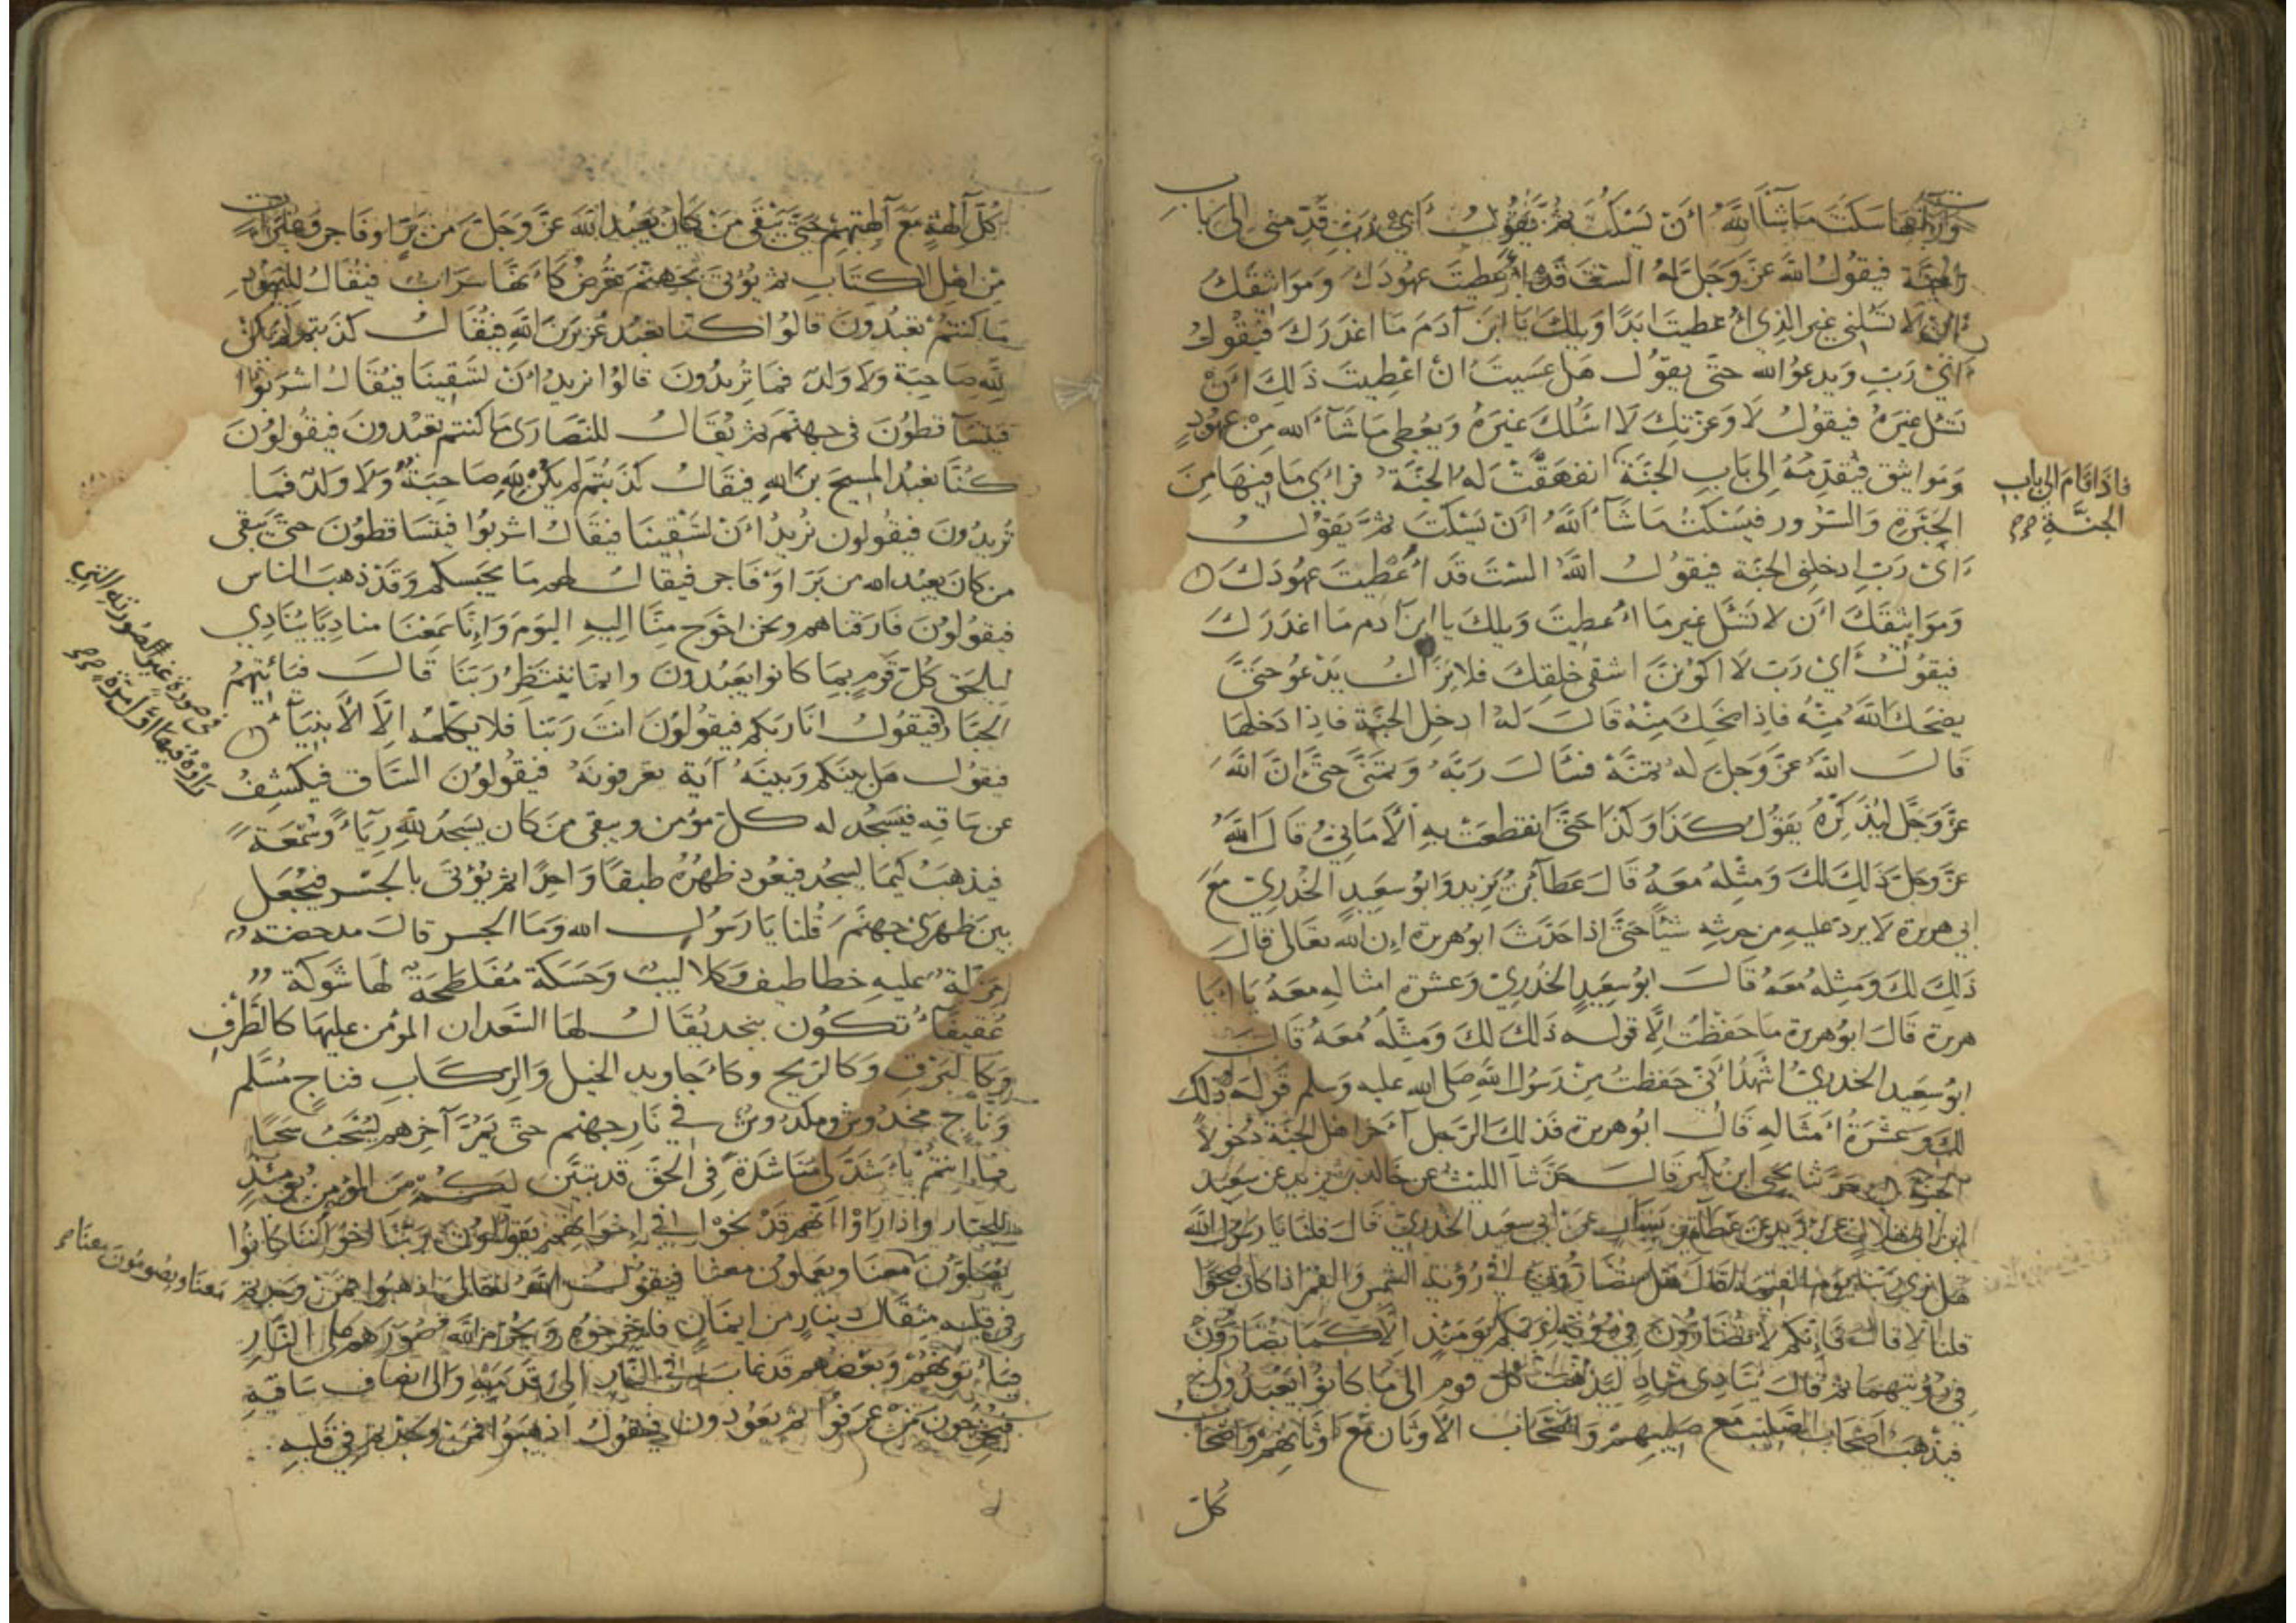 ورآها سكت ما شآء اللّٰه أن يسكت ثم يقول أي رب قدمني الى باب
الجنة فيقول الله عز وجل له الست قد أعطيت عهودك ومواثيقك
أن لا تسلني غير الذي أعطيت ابدا ويلك يا ابن آدم ما اغدرك فيقول
أي رب ويدعو الله حتى يقول هل عسيت ان اعطيت ذلك أن
تسل غيره فيقول لا وعزتك لا اسئلك غيره ويعطي ما شآء الله من عهود
ومواثيق فيقدمه إلى باب الجنة انفهقت له الجنة فرأى ما فيها من
الحبرة والسرور فيسكت ما شآء الله أن يسكت ثم يقول
أي رب ادخلني الجنة فيقول الله الست قد أعطيت عهودك
ومواثيقك أن لا تسئل غير ما أعطيت ويلك يا ابن آدم ما اغدرك
فيقول أي رب لا اكونن اشقى خلقك فلا يزال يدعو حتى
يضحك الله منه فاذا ضحك منه قال له ادخل الجنة فاذا دخلها
قال الله عز وجل له تمنه فسأل ربه وتمنى حتى ان الله
عز وجل ليذكره يقول كذا وكذا حتى انقطعت به الأماني قال الله
عز وجل ذلك لك ومثله معه قال عطآء بن يزيد وابو سعيد الخدري مع
ابي هريرة لا يرد عليه من حديثه شيئا حتى اذا حدث ابو هريرة ان الله تعالى قال
ذلك لك ومثله معه قال ابو سعيد الخدري وعشرة امثاله معه يا ابا
هريرة قال ابو هريرة ما حفظت الا قوله ذلك لك ومثله معه قال
ابو سعيد الخدري اشهد أني حفظت من رسول الله صلى الله عليه وسلم قوله ذلك
لك وعشرة أمثاله قال ابو هريرة فذلك الرجل آخر اهل الجنة دخولا
الجنة حدثنا يحيى ابن بكير قال حدثنا الليث عن خالد بن يزيد عن سعيد
ابن ابي هلال عن زيد عن عطآء بن يسار عن ابي سعيد الخدري قال قلنا يا رسول الله
هل نرى ربنا يوم القيمة قال هل تضارون في رؤية الشمس والقمر اذا كان صحوا
قلنا لا قال فانكم لا تضارون في رؤية ربكم يومئذ الا كما تضارون
في رؤيتهما ثم قال ينادي مناد ليذهب كل قوم الى ما كانوا يعبدون
فيذهب اصحاب الصليب مع صليبهم واصحاب الأوثان مع اوثانهم واصحاب
كل
فاذا قام الى باب
الجنة
كل آلهة مع آلهتهم حتى يبقى من كان يعبد الله عز وجل من بر او فاجر وغبرات
من اهل الكتاب ثم يؤتى بجهنم تعرض كأنها سراب فيقال لليهود
ما كنتم تعبدون قالوا كنا نعبد عزير بن الله فيقال كذبتم لم يكن
لله صاحبة ولا ولد فما تريدون قالوا نريد أن تسقينا فيقال اشربوا
فيتساقطون في جهنم ثم يقال للنصارى ما كنتم تعبدون فيقولون
كنا نعبد المسيح بن الله فيقال كذبتم لم يكن لله صاحبة ولا ولد فما
تريدون فيقولون نريد أن تسقينا فيقال اشربوا فيتساقطون حتى يبقى
من كان يعبد الله من بر او فاجر فيقال لهم ما يحبسكم وقد ذهب الناس
فيقولون فارقناهم ونحن احوج منا اليه اليوم وإنا سمعنا مناديا ينادي
ليلحق كل قوم بما كانوا يعبدون وانما ننتظر ربنا قال فيأتيهم
الجبار فيقول انا ربكم فيقولون انت ربنا فلا يكلمه الا الأنبيآء
فيقول هل بينكم وبينه آية تعرفونه فيقولون الساق فيكشف
عن ساقه فيسجد له كل مؤمن ويبقى من كان يسجد لله ريآء وسمعة
فيذهب كيما يسجد فيعود ظهره طبقا واحدا ثم يؤتى بالجسر فيجعل
بين ظهري جهنم قلنا يا رسول الله وما الجسر قال مدحضة
مزلة عليه خطاطيف وكلاليب وحسكة مفلطحة لها شوكة
عقيفآء تكون بنجد يقال لها السعدان المؤمن عليها كالطرف
وكالبرق وكالريح وكأجاويد الخيل والركاب فناج مسلم
وناج مخدوش ومكدوس في نار جهنم حتى يمر آخرهم يسحب سحبا
فما انتم بأشد لي مناشدة في الحق قد تبين لكم من المؤمن يومئذ
للجبار واذا راوا انهم قد نجوا في اخوانهم يقولون ربنا اخواننا كانوا
يصلون معنا ويعملون معنا فيقول الله تعالى اذهبوا فمن وجدتم
في قلبه مثقال دينار من ايمان فاخرجوه ويحرم الله صورهم على النار
فيأتونهم وبعضهم قد غاب في النار الى قدمه والى انصاف ساقيه
فيخرجون من عرفوا ثم يعودون فيقول اذهبوا فمن وجدتم في قلبه
في صورة غير الصورته التي
راوه فيها اول مرة
معنا ويصومون معنا